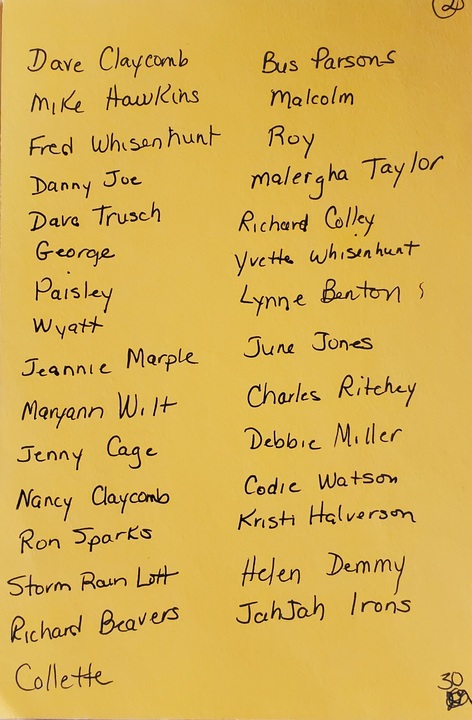 2
Dave Claycomb
Mike Hawkins
Fred Whisenhunt
Danny Joe
Dava Trusch
George
Paisley
Wyatt
Jeannie Marple
Maryann Wilt
Jenny Cage
Nancy Claycomb
Ron Sparks
Storm Rain Lott
Richard Beavers
Collette
Bus Parsons
Malcolm
Roy
Malergha Taylor
Richard Colley
Yvette Whisenhunt
Lynne Benton
June Jones
Charles Ritchey
Debbie Miller
Codie Watson
Kristi Halverson
Helen Demmy
JahJah Irons
30